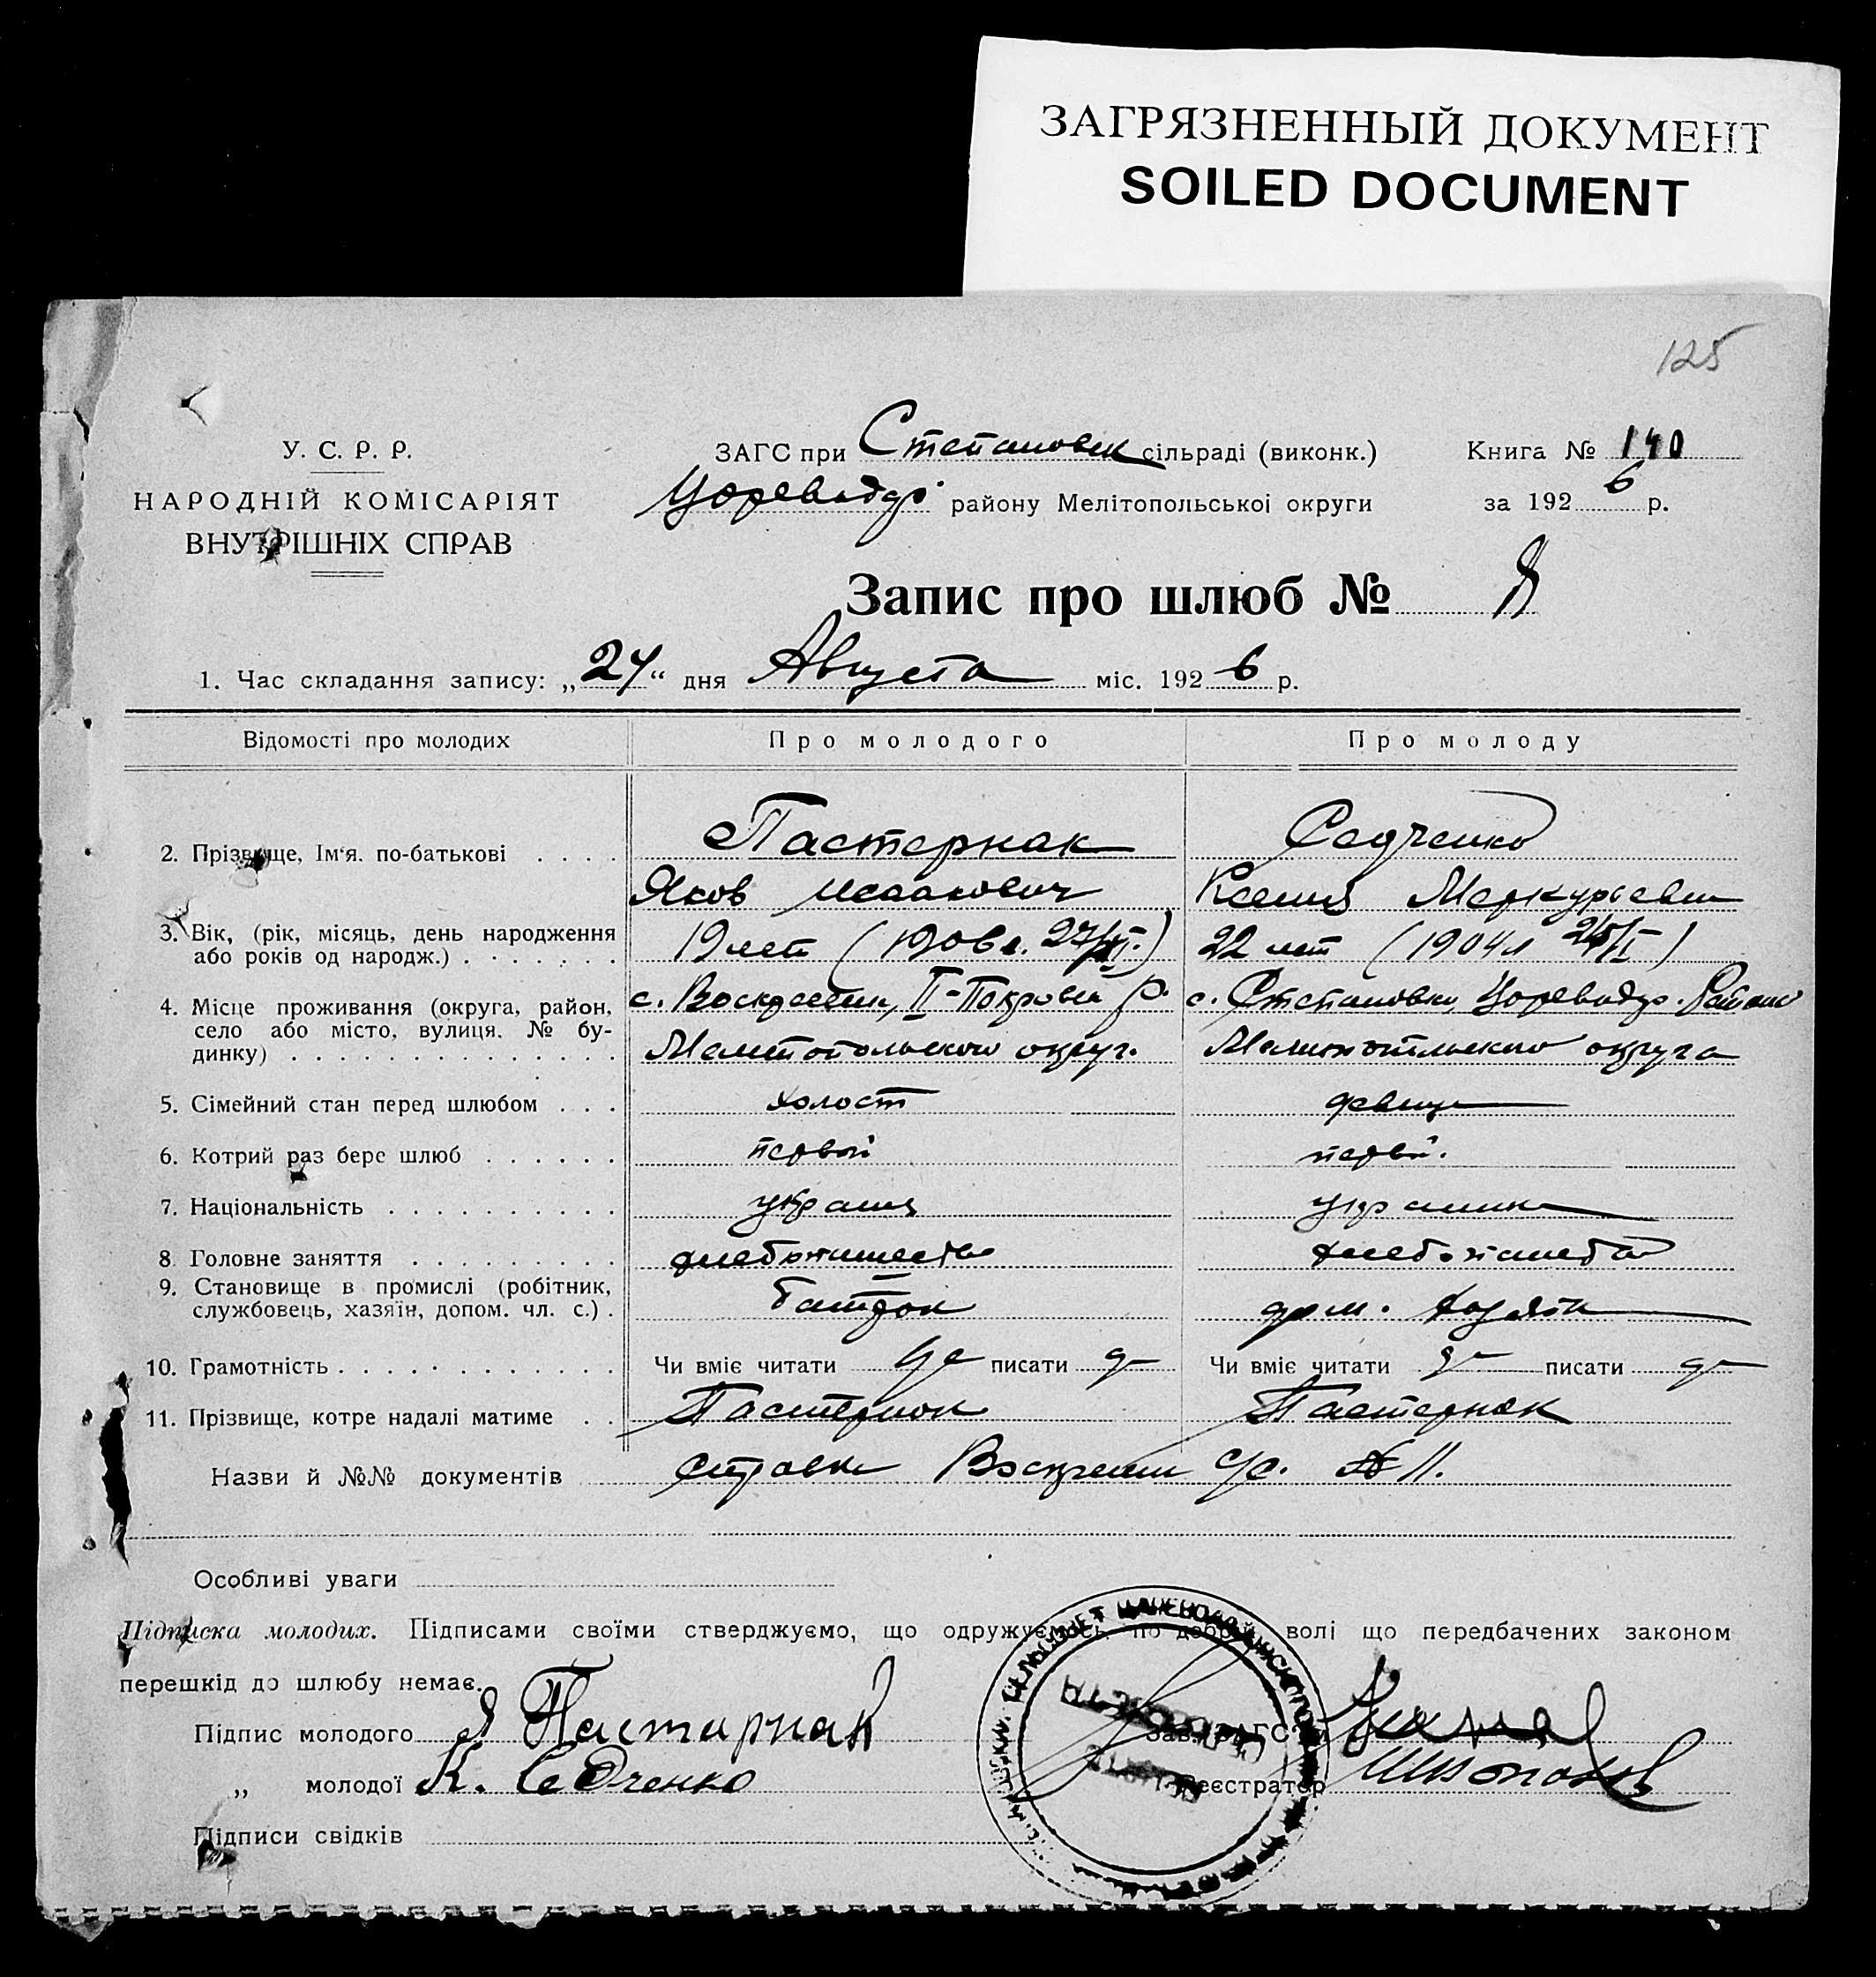 ЗАГРЯЗНЕННЫЙ ДОКУМЕНТ
SOILED DOCUMENT
125
У. С. Р. Р.
НАРОДНІЙ КОМІСАРІЯТ
ВНУТРІШНІХ СПРАВ
ЗАГС при Степановск сільраді (виконк.)
Цареводар району Мелітопольської округи
Книга № 140
за 1926 р.
Запис про шлюб № 8
1. Час складання запису: „24“ дня Августа міс. 1926 р.
Відомості про молодих Про молодого Про молоду
2. Прізвище, Ім‘я. по-батькові . . . . Пастернак Седченко
Яков Исаакович Ксения Меркурьевн
3. Вік, (рік, місяць, день народження
або років од народж.) . . . . . . . 19 лет (1906 г. 22 лет (1904 г 24/I)
4. Місце проживання (округа, район, с. Воскресенки, II-Покровск р. с. Степановки, Цареводар. Района
село або місто, вулиця. № бу-
динку) . . . . . . . . . . . . . . Мелитопольского округ. Мелитопольского округа
5. Сімейний стан перед шлюбом . . . холост девица
6. Котрий раз бере шлюб . . . . . . первый первы.
7. Національність . . . . . . . . . . украин украинка
8 Головне заняття . . . . . . . . . хлебопашество хлебопашество
9. Становище в промислі (робітник,
службовець, хазяїн, допом. чл. с.) . батрак дом. хозяйк
10. Грамотність . . . . . . . . . . . . Чи вміє читати да писати да Чи вміє читати да писати да
11. Прізвище, котре надалі матиме . . Пастернак Пастернак
Назви й №№ документів справка Воскресен с/с. № 11.
Особливі уваги
Підписка молодих. Підписами своїми стверджуємо, що одружуємось по добрій волі що передбачених законом
перешкід до шлюбу немає.
Підпис молодого Я Пастарнак Зав. ЗАГС'ом
„ молодої К. Седченко Реєстратор
Підписи свідків